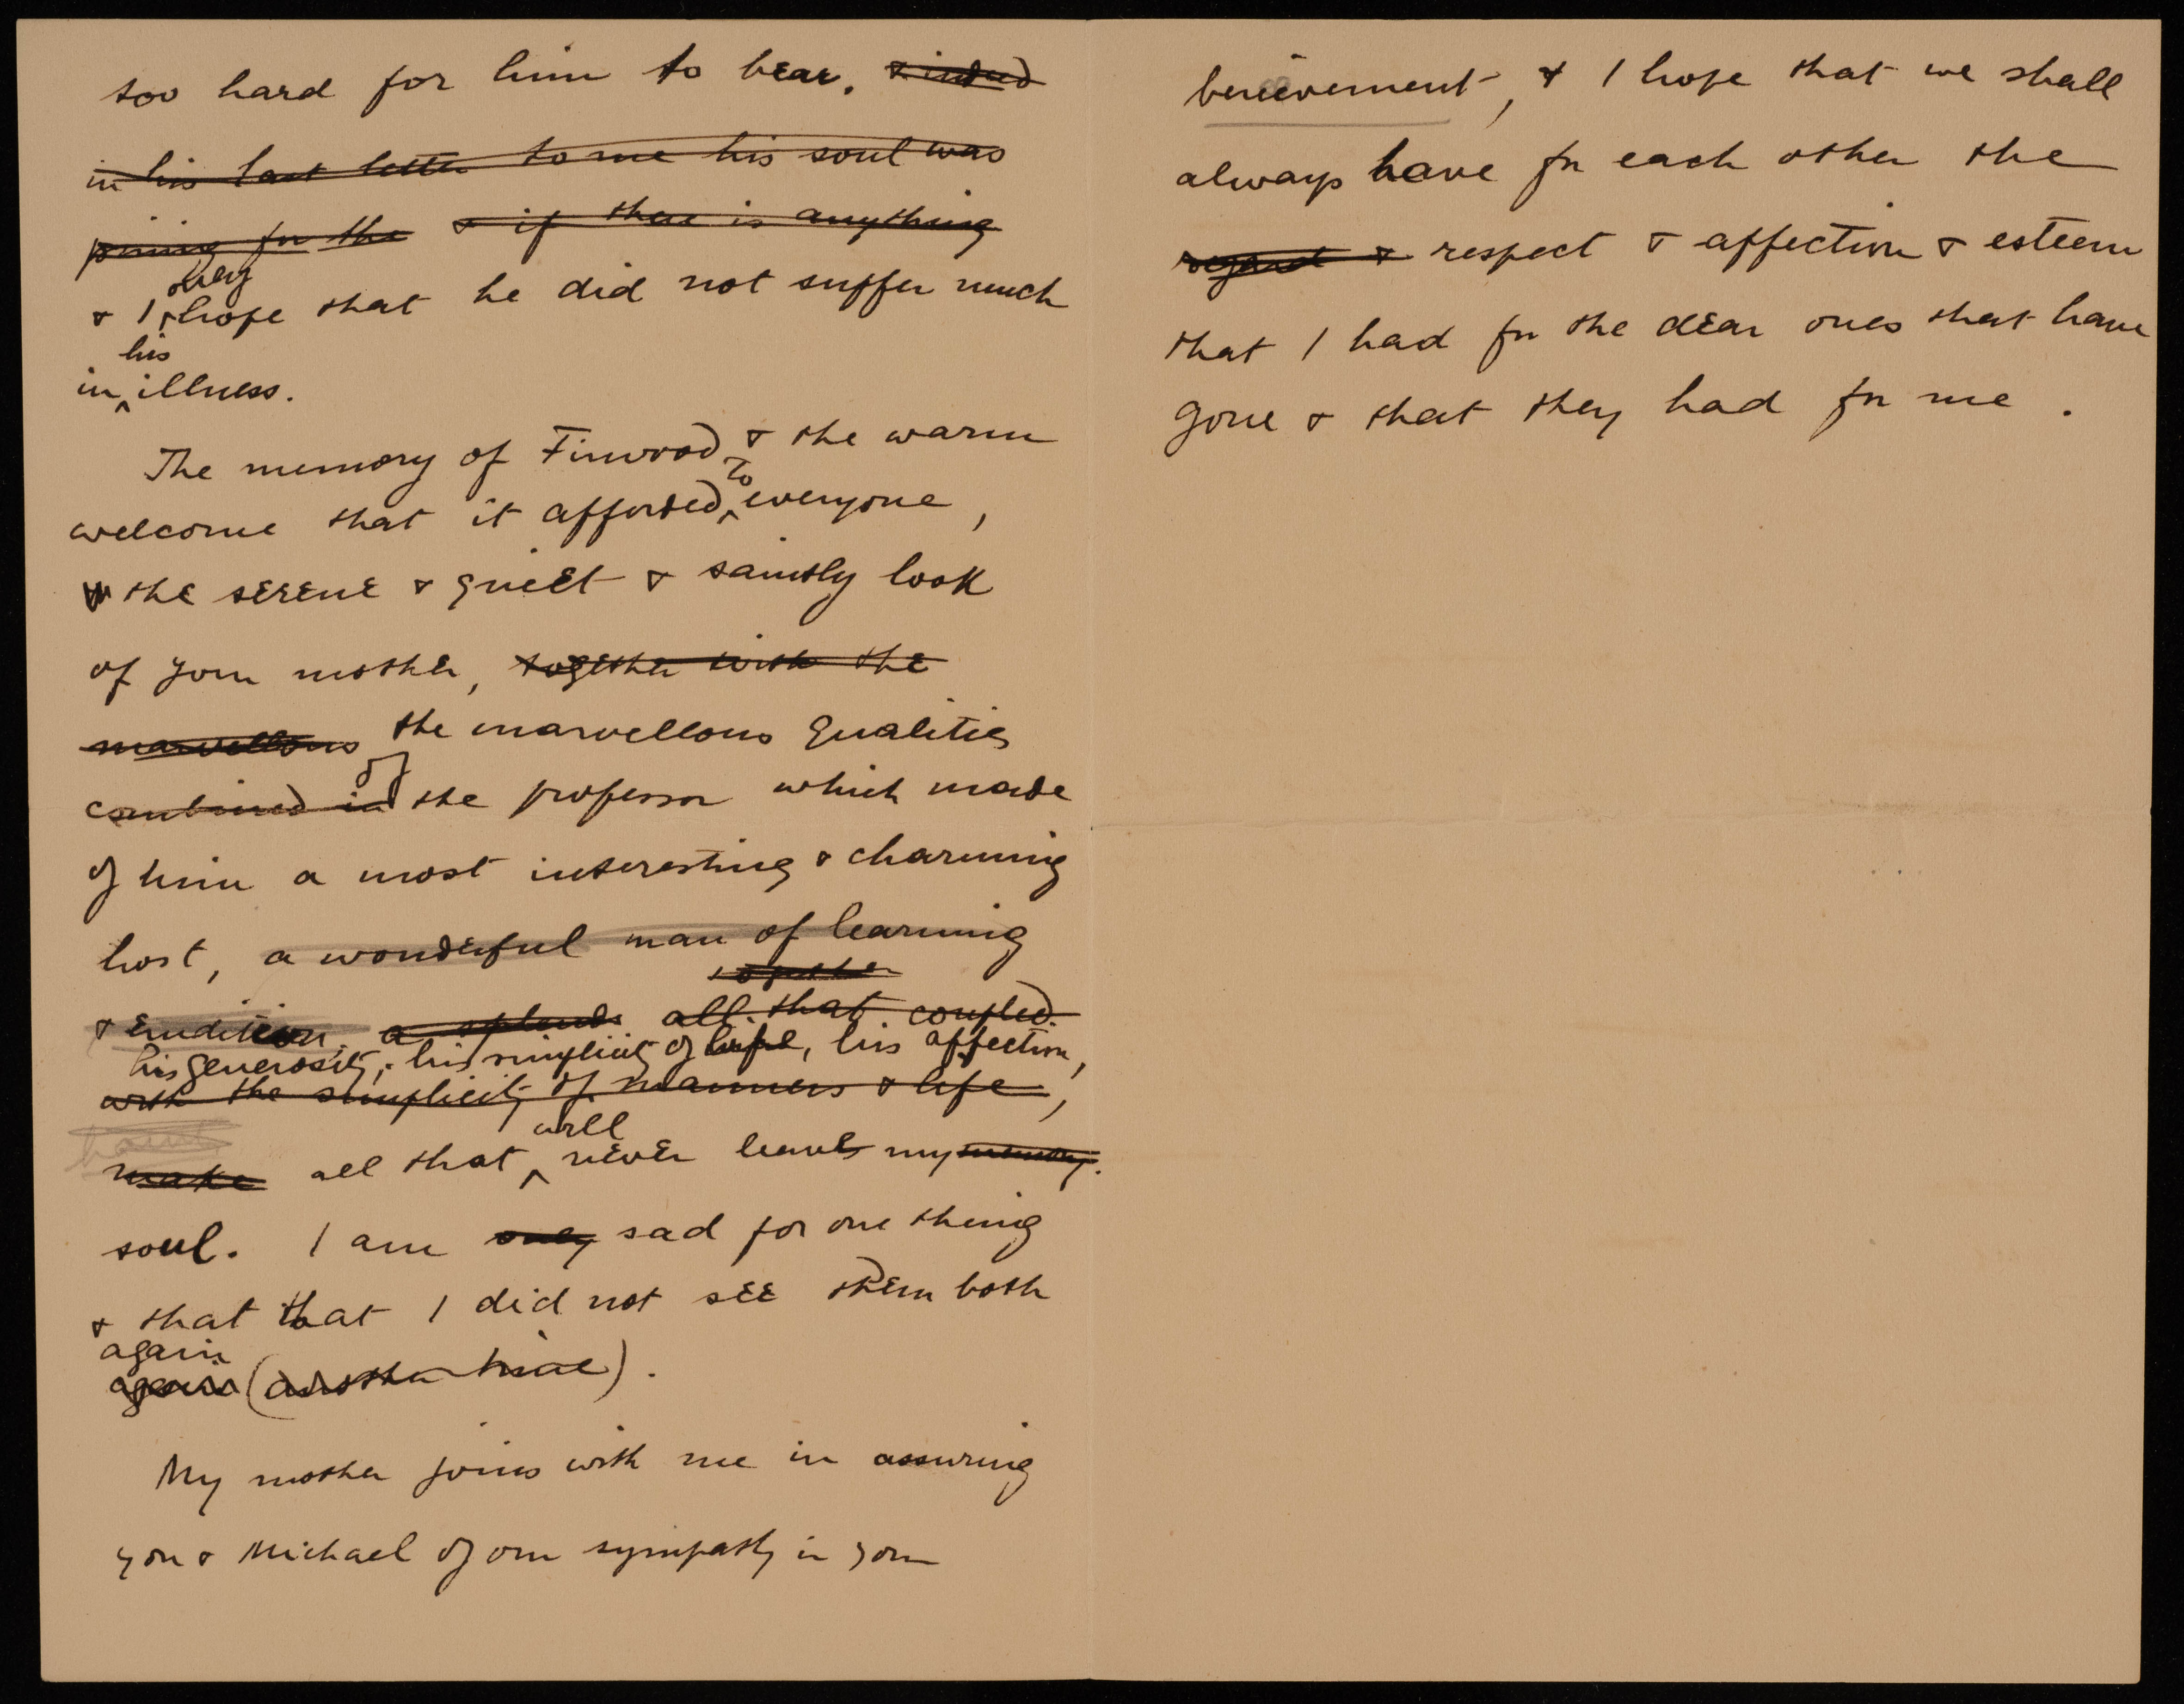 too hard for him to bear. & indeed
in his last letter to me his soul was
pining for the & if there is anything
only
& I hope that he did not suffer much
his
in illness.
The memory of Finwood, & the warm
to
welcome that it afforded everyone,
the serene & quiet & saintly look
of your mother, together with the
marvellous the marvellous qualities
of
combined in the professor which made
of him a most interesting & charming
host, a wonderful man of learning
together
& erudition, a splendid all that coupled
his generosity, his simplicity of life, his affection,
with the simplicity of manners & life,
will
make all that never leave my memory.
soul. I am only sad for one thing
& that that I did not see them both
again
again (another time).
My mother joins with me in assuring
you & Michael of our sympathy in your
berievement, & I hope that we shall
always have for each other the
regard & respect & affection & esteem
that I had for the dear ones that have
gone & that they had for me.